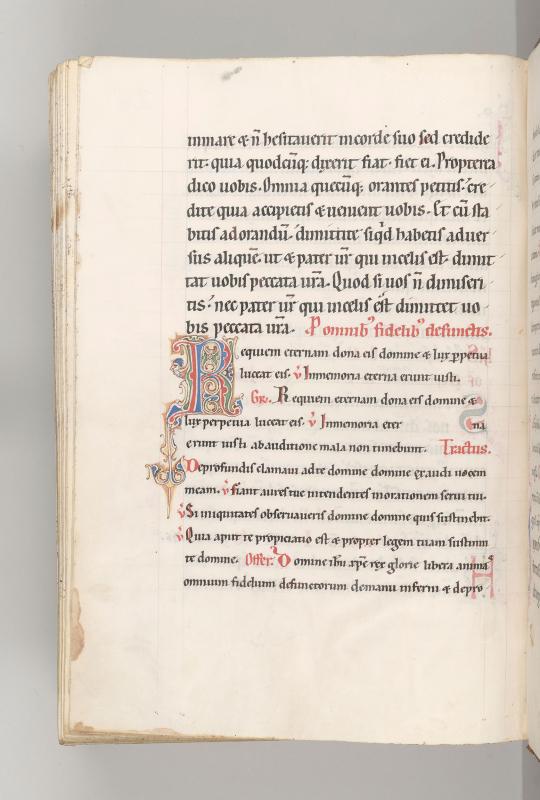 in mare & n̄ hesitauerit in corde suo sed credide
rit. quia quodcūq; dixerit fiat. fiet ei. Propterea
dico uobis. Omnia quecūq; orantes petitis. cre
dite quia accipietis & uenient uobis. Et cū sta
bitis ad orandū. dimittite siq̇d habetis aduer
sus aliquē. ut & pater ur̄ qui in celis est. dimit
tat uobis peccata ur̄a. Quod si uos n̄ dimiseri
tis. nec pater ur̄ qui in celis ēst dimittet uo
bis peccata ur̄a. P omnibꝰ fidelibꝰ defunctis.
Requiem eternam dona eis domine & lux ꝑpetua
luceat eis. v̇ In memoria eterna erunt iusti.
Gr̄. Requiem eternam dona eis domine &
lux perpetua luceat eis. v̇ In memoria eter na
erunt iusti ab auditione mala non timebunt. Tractus.
De profundis clamaui ad te domine domine exaudi uocem
meam. v̇ Fiant aures tue intendentes in orationem serui tui.
v̇ Si iniquitates obseruaueris domine domine quis sustinebit.
v̇ Quia aput te propiciatio est & propter legem tuam sustinui
te domine. Offer̄. Domine ih̄u xp̄e rex glorie libera animas
omnium fidelium defunctorum de manu inferni & de pro